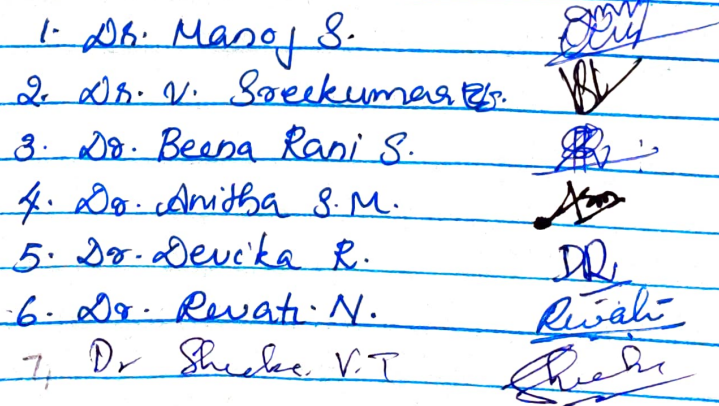 1. Dr. Manoj S.
2. Dr. V. Sreekumar
3. Dr. Beena Rani S.
4. Dr. Anitha S.M.
5. Dr. Devika R. DR
6. Dr. Revati. N. Revati
7, Dr V.T